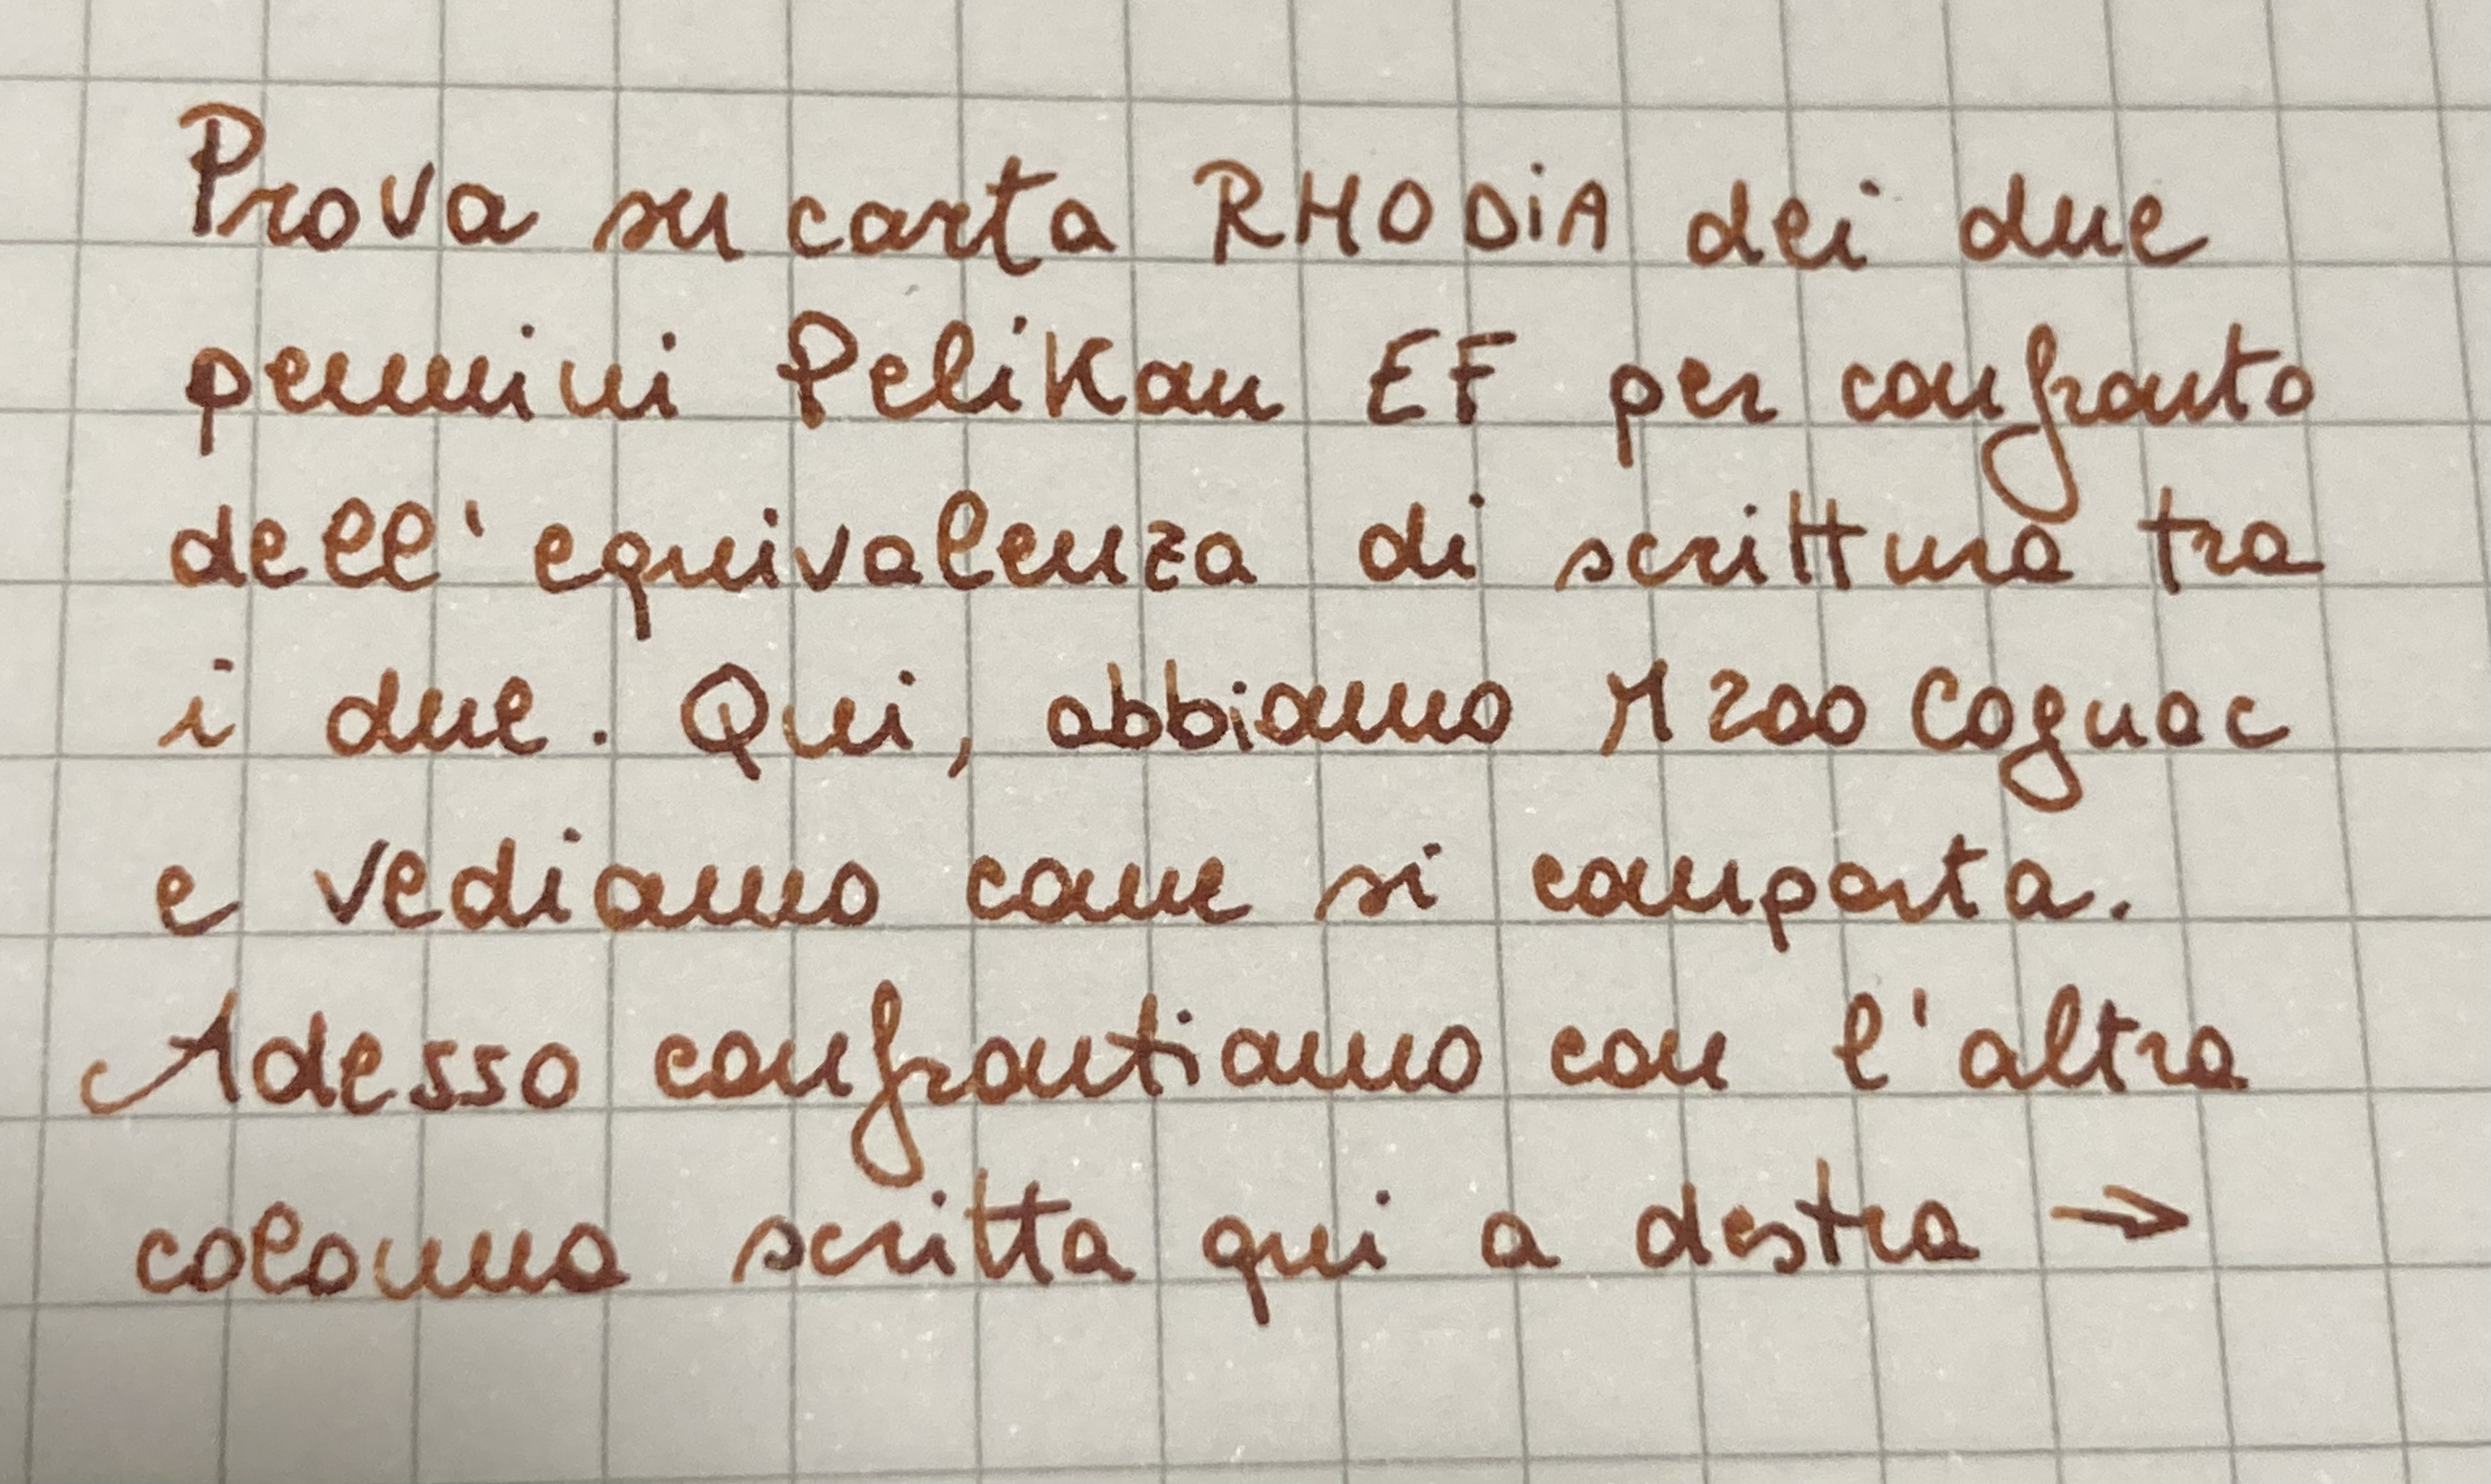 Prova su carta RHODiA dei due
pennini Pelikan EF per confronto
dell'equivalenza di scrittura tra
i due. Qui, abbiamo M200 Cognac
e vediamo come si comporta.
Adesso confrontiamo con l'altra
colonna scritta qui a destra →